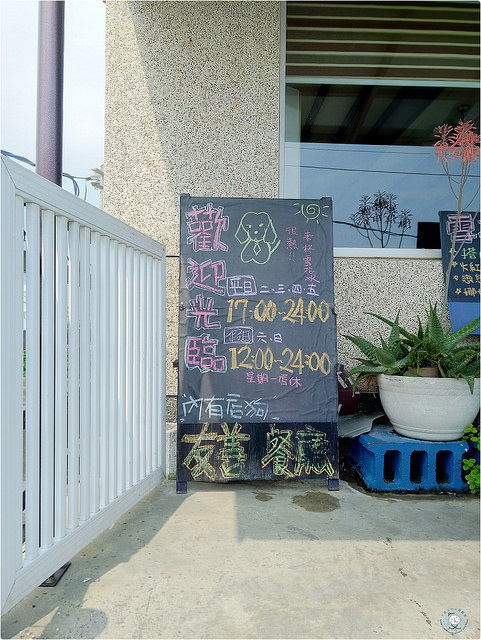 歡迎光臨。
很熱!!
來杯
平日 二、三、四、五
17:00~24:00
假日 六、日
12:00~24:00
星期一店休
內有店狗
友善 餐廳
雪